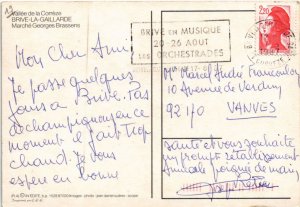 Vallée de la Corrèze
BRIVE-LA-GAILLARDE
Marché Georges Brassens
BRIVE en MUSIQUE
20-26 AOUT
LES ORCHESTRADES
2,20
Mon Cher Ami
Je passe quelques
jours à Brive. Pas
de champignon en ce
moment il fait trop
chaud. Je vous
espère en bonne
Marcel
10 Avenue de Verdun
92170
VANVES
santé et vous souhaite
un prompt rétablissement
Amicale poignée de main